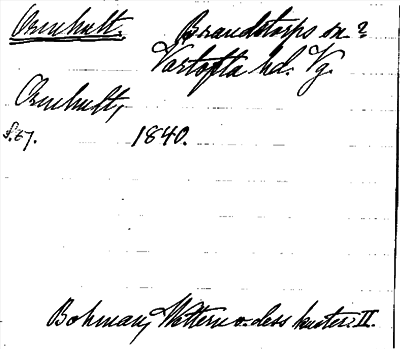 Ornhult. Brandstorps sn?
Vartofta hd. Vg.
Ornhult,
s. 67. 1840.
Bohman, Wettern o. dess kuster. II.